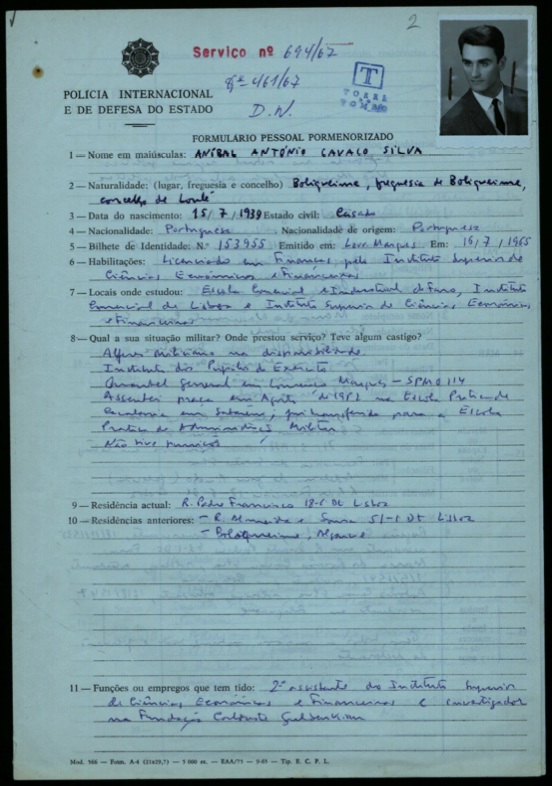 2
Serviço nº 694/67
461/67
D.N.
T
TORRE
DO
TOMBO
POLÍCIA INTERNACIONAL
E DE DEFESA DO ESTADO
FORMULARIO PESSOAL PORMENORIZADO
1 — Nome em maiúsculas: ANÍBAL ANTÓNIO CAVACO SILVA
2 — Naturalidade: (lugar, freguesia e concelho) Boliqueime, freguesia de Boliqueime,
concelho de Loulé
3 — Data do nascimento: 15 / 7 / 1939 Estado civil: Casado
4 — Nacionalidade: Portuguesa Nacionalidade de origem: Portuguesa
5 — Bilhete de Identidade: N.º 153955 Emitido em: Lour. Marques Em: 16 / 7 / 1965
6 — Habilitações: Licenciado em Finanças pelo Instituto Superior de
Ciências Económicas e Financeiras
7 — Locais onde estudou: Escola Comercial e Industrial de Faro, Instituto
Comercial de Lisboa e Instituto Superior de Ciências Económicas
e Financeiras
8 — Qual a sua situação militar? Onde prestou serviço? Teve algum castigo?
Alferes Miliciano na disponibilidade
Instituto dos Pupilos do Exército
Quartel General em Lourenço Marques — SPM 0114
Assentei praça em Agosto de na Escola Prática de
Cavalaria em Santarém, fui transferido para a Escola
Prática de Administração Militar
Não tive
9 — Residência actual: R. Padre Francisco 18-6 Dt Lisboa
10 — Residências anteriores: — R. Almeida e Sousa 51-1 Dt Lisboa
— Boliqueime, Algarve
11 — Funções ou empregos que tem tido: 2º assistente do Instituto Superior
de Ciências Económicas e Financeiras e investigador
na Fundação Calouste Gulbenkian
Mod. 566 — Form. A-4 — 5 000 ex. — EAA/75 — 9-65 — Tip. E. C. P. L.